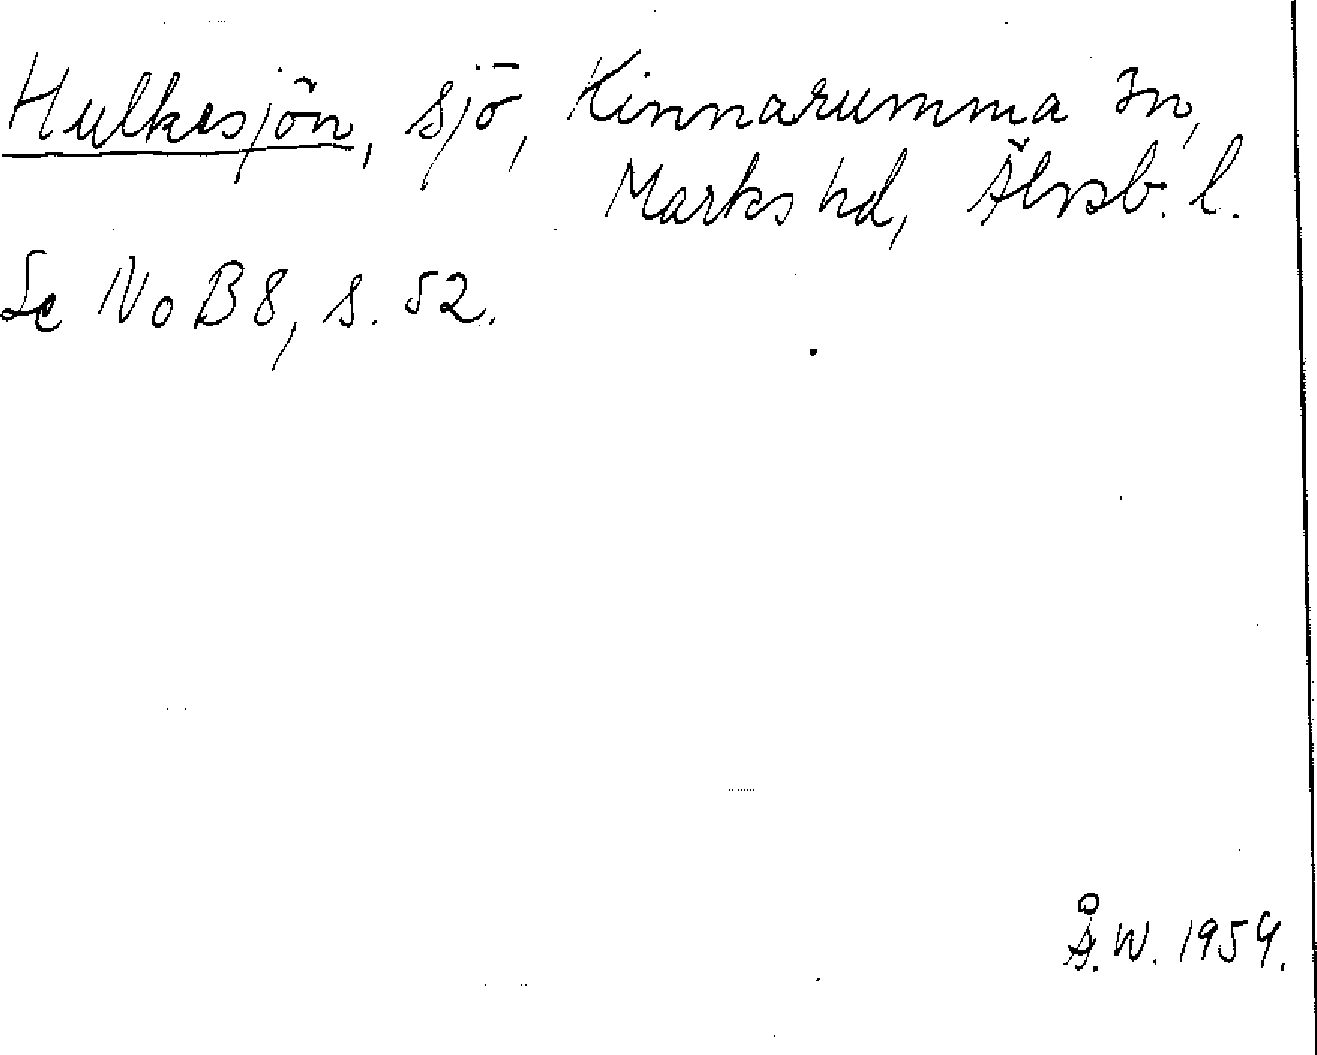 Hulkesjön, sjö, Kinnarumma sn,
Marks hd, Älvsb. l.
Se NoB 8, s. 52.
Å.W. 1954.